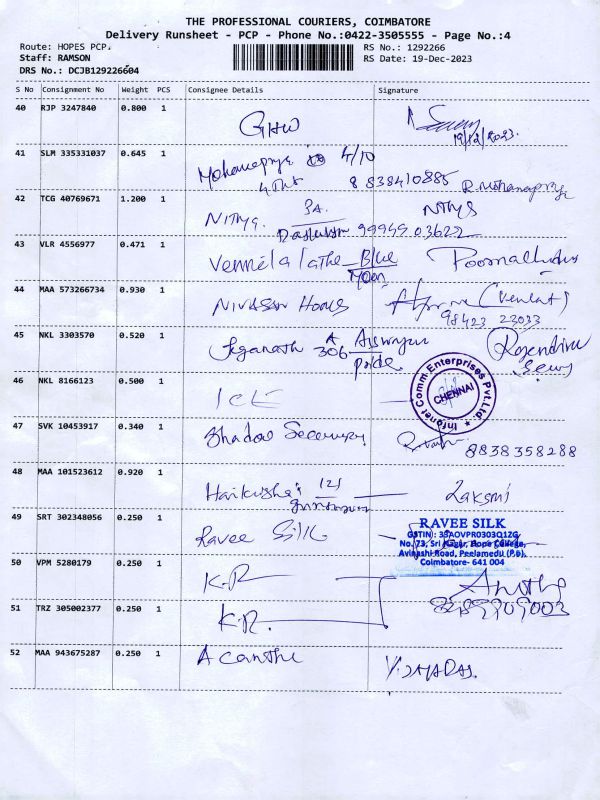 THE PROFESSIONAL COURIERS, COIMBATORE
Delivery Runsheet - PCP - Phone No.:0422-3505555 - Page No.:4
Route: HOPES PCP. RS No.: 1292266
Staff: RAMSON RS Date: 19-Dec-2023
DRS No.: DCJB129226604
S No Consignment No Weight PCS Consignee Details Signature
40 RJP 3247840 0.800 1 GHW
19/12/2023.
41 SLM 335331037 0.645 1 Mohanapriya 4/10
8838410885 R. Mohanapriya
42 TCG 40769671 1.200 1 Nithya. 3A. Nithya
99949 03622
43 VLR 4556977 0.471 1 Vennila lathe Blue
Moon
44 MAA 573266734 0.930 1 Nivasan Homes (Venkat)
98423 23033
45 NKL 3303570 0.520 1 Jeganath A 306 Aiswarya Rajendira
pride
46 NKL 8166123 0.500 1 ICE
Infonet Comm Enterprises Pvt.Ltd. ★
CHENNAI
47 SVK 10453917 0.340 1 Bhadra Security
8838358288
48 MAA 101523612 0.920 1 121 Laksmi
49 SRT 302348056 0.250 1 Ravee Silk
RAVEE SILK
GSTIN: 33AOVPR0303Q1ZG
No. 73, Sri Nagar, Hope College,
Avinashi Road, Peelamedu (P.o),
Coimbatore- 641 004
50 VPM 5280179 0.250 1 K.R
51 TRZ 305002377 0.250 1 K.R.
52 MAA 943675287 0.250 1 Acanthe